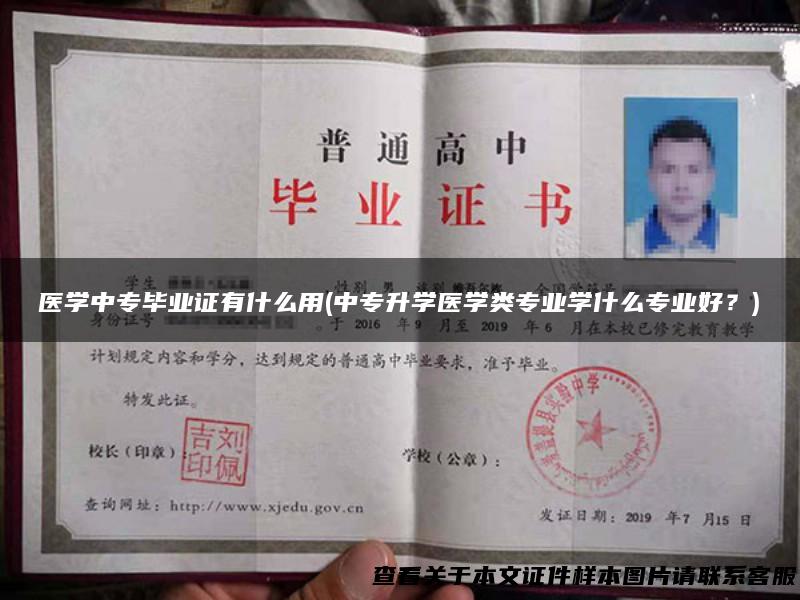 普通高中
毕业证书
学生 性别 男
医学中专毕业证有什么用(中专升学医学类专业学什么专业好？)
身份证号 。于 2016 年 9 月至 2019 年 6 月在本校已修完教育教学
计划规定内容和学分，达到规定的普通高中毕业要求，准予毕业。
特发此证。
校长（印章）：
刘佩吉印
学校（公章）：
县实验中学
查询网址：http://www.xjedu.gov.cn
发证日期：2019 年7 月15 日
查看关于本文证件样本图片请联系客服